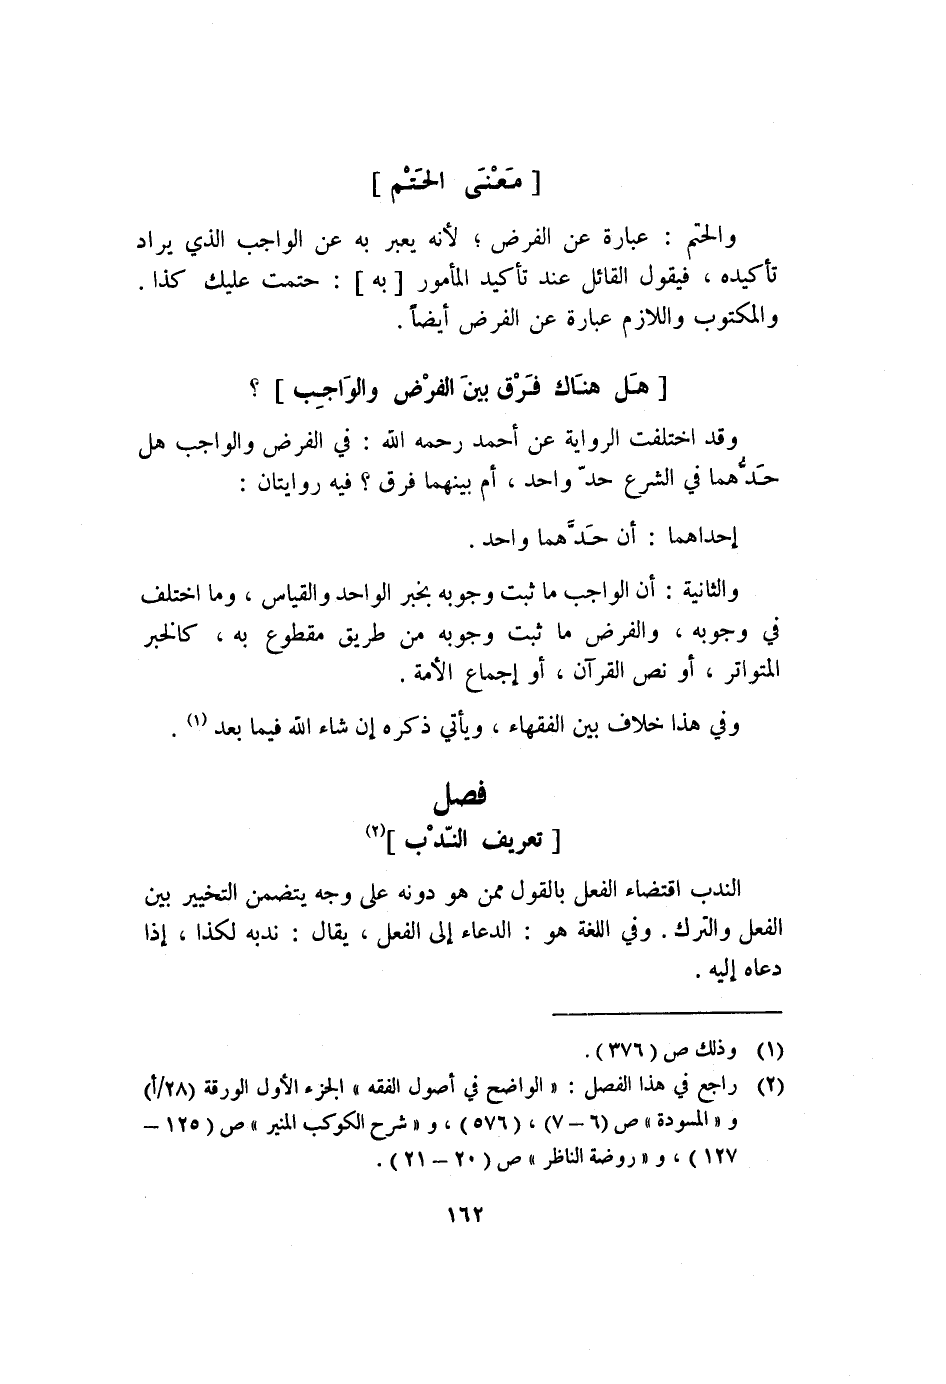 [ مَعْنَى الحَتْم ]
والحتم : عبارة عن الفرض ؛ لأنه يعبر به عن الواجب الذي يراد
تأكيده ، فيقول القائل عند تأكيد المأمور [ به ] : حتمت عليك كذا .
والمكتوب واللازم عبارة عن الفرض أيضاً .
[ هَل هنَاك فَرْق بينَ الفرْض والوَاجِب ] ؟
وقد اختلفت الرواية عن أحمد رحمه الله : في الفرض والواجب هل
حَدُّهما في الشرع حدّ واحد ، أم بينهما فرق ؟ فيه روايتان :
إحداهما : أن حَدَّهما واحد .
والثانية : أن الواجب ما ثبت وجوبه بخبر الواحد والقياس ، وما اختلف
في وجوبه ، والفرض ما ثبت وجوبه من طريق مقطوع به ، كالخبر
المتواتر ، أو نص القرآن ، أو إجماع الأمة .
وفي هذا خلاف بين الفقهاء ، ويأتي ذكره إن شاء الله فيما بعد (١) .
فصل
[ تعريف النّدْب ](٢)
الندب اقتضاء الفعل بالقول ممن هو دونه على وجه يتضمن التخيير بين
الفعل والترك . وفي اللغة هو : الدعاء إلى الفعل ، يقال : ندبه لكذا ، إذا
دعاه إليه .
(١) وذلك ص ( ٣٧٦ ) .
(٢) راجع في هذا الفصل : « الواضح في أصول الفقه » الجزء الأول الورقة (٢٨/أ)
و « المسودة » ص (٦ – ٧) ، ( ٥٧٦ ) ، و « شرح الكوكب المنير » ص ( ١٢٥ –
١٢٧ ) ، و « روضة الناظر » ص ( ٢٠ – ٢١ ) .
١٦٢